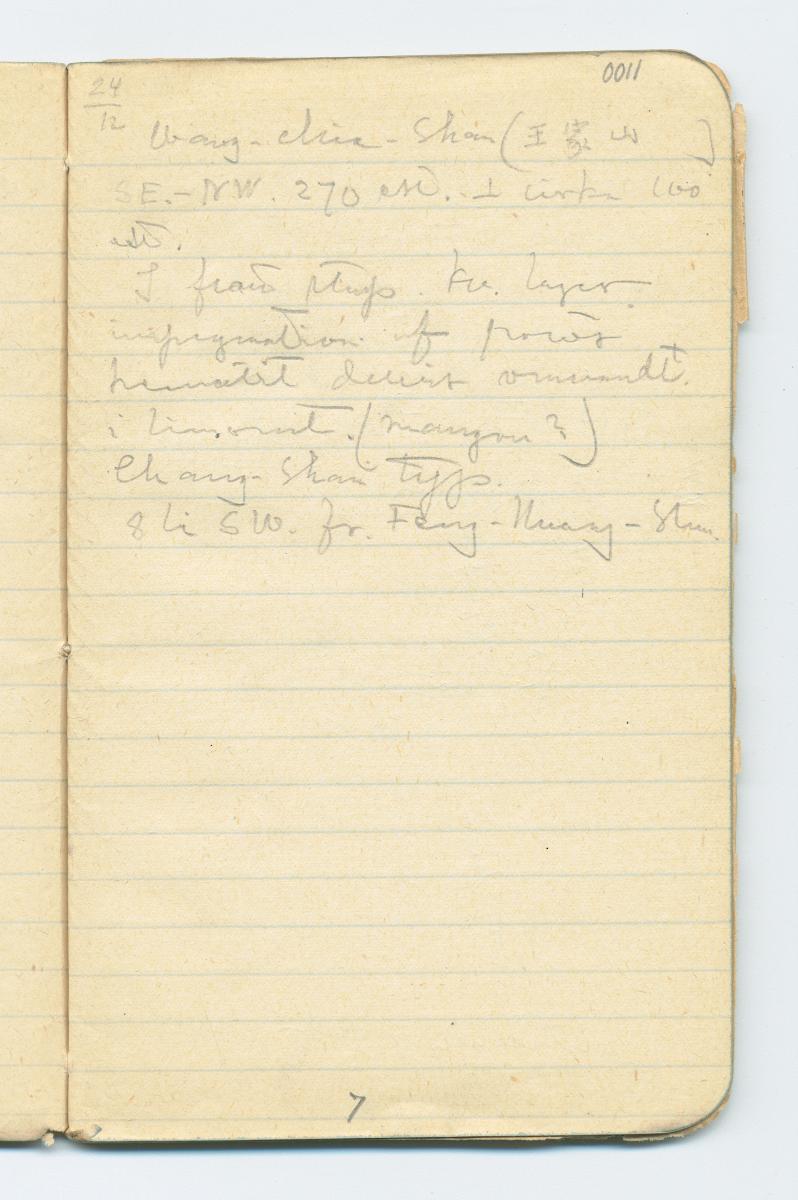 0011
24
12
Wang-chia-Shan (王家山)
SE.-NW. 270 est. ⊥ cirka 100
est.
I
impregnation af porös
hematit delvis omvandl.
i limonit. (mangan?)
Chang-Shan typ.
8 li SW. fr. Feng-Huang-Shan.
7